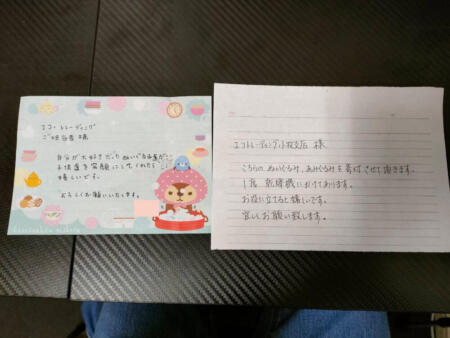 エコ・トレーディング
ご担当者 様
自分が大好きだったぬいぐるみ達が
子供達を笑顔にしてくれたら
嬉しいです。
よろしくお願いいたします。
エコトレーディング小牧支店 様
こちらの ぬいぐるみ、あみぐるみを寄付させて頂きます。
1度 乾燥機にかけてあります。
お役に立てると嬉しいです。
宜しくお願い致します。